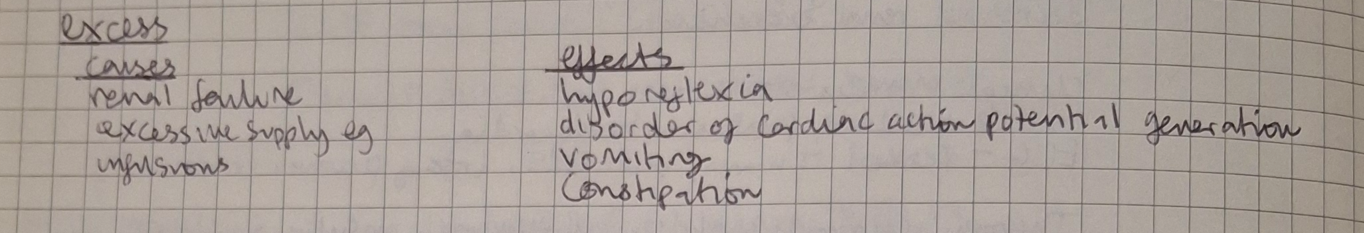 excess
causes
renal failure
excessive supply eg
infusions
effects
hyporeflexia
disorder of cardiac action potential generation
vomiting
constipation